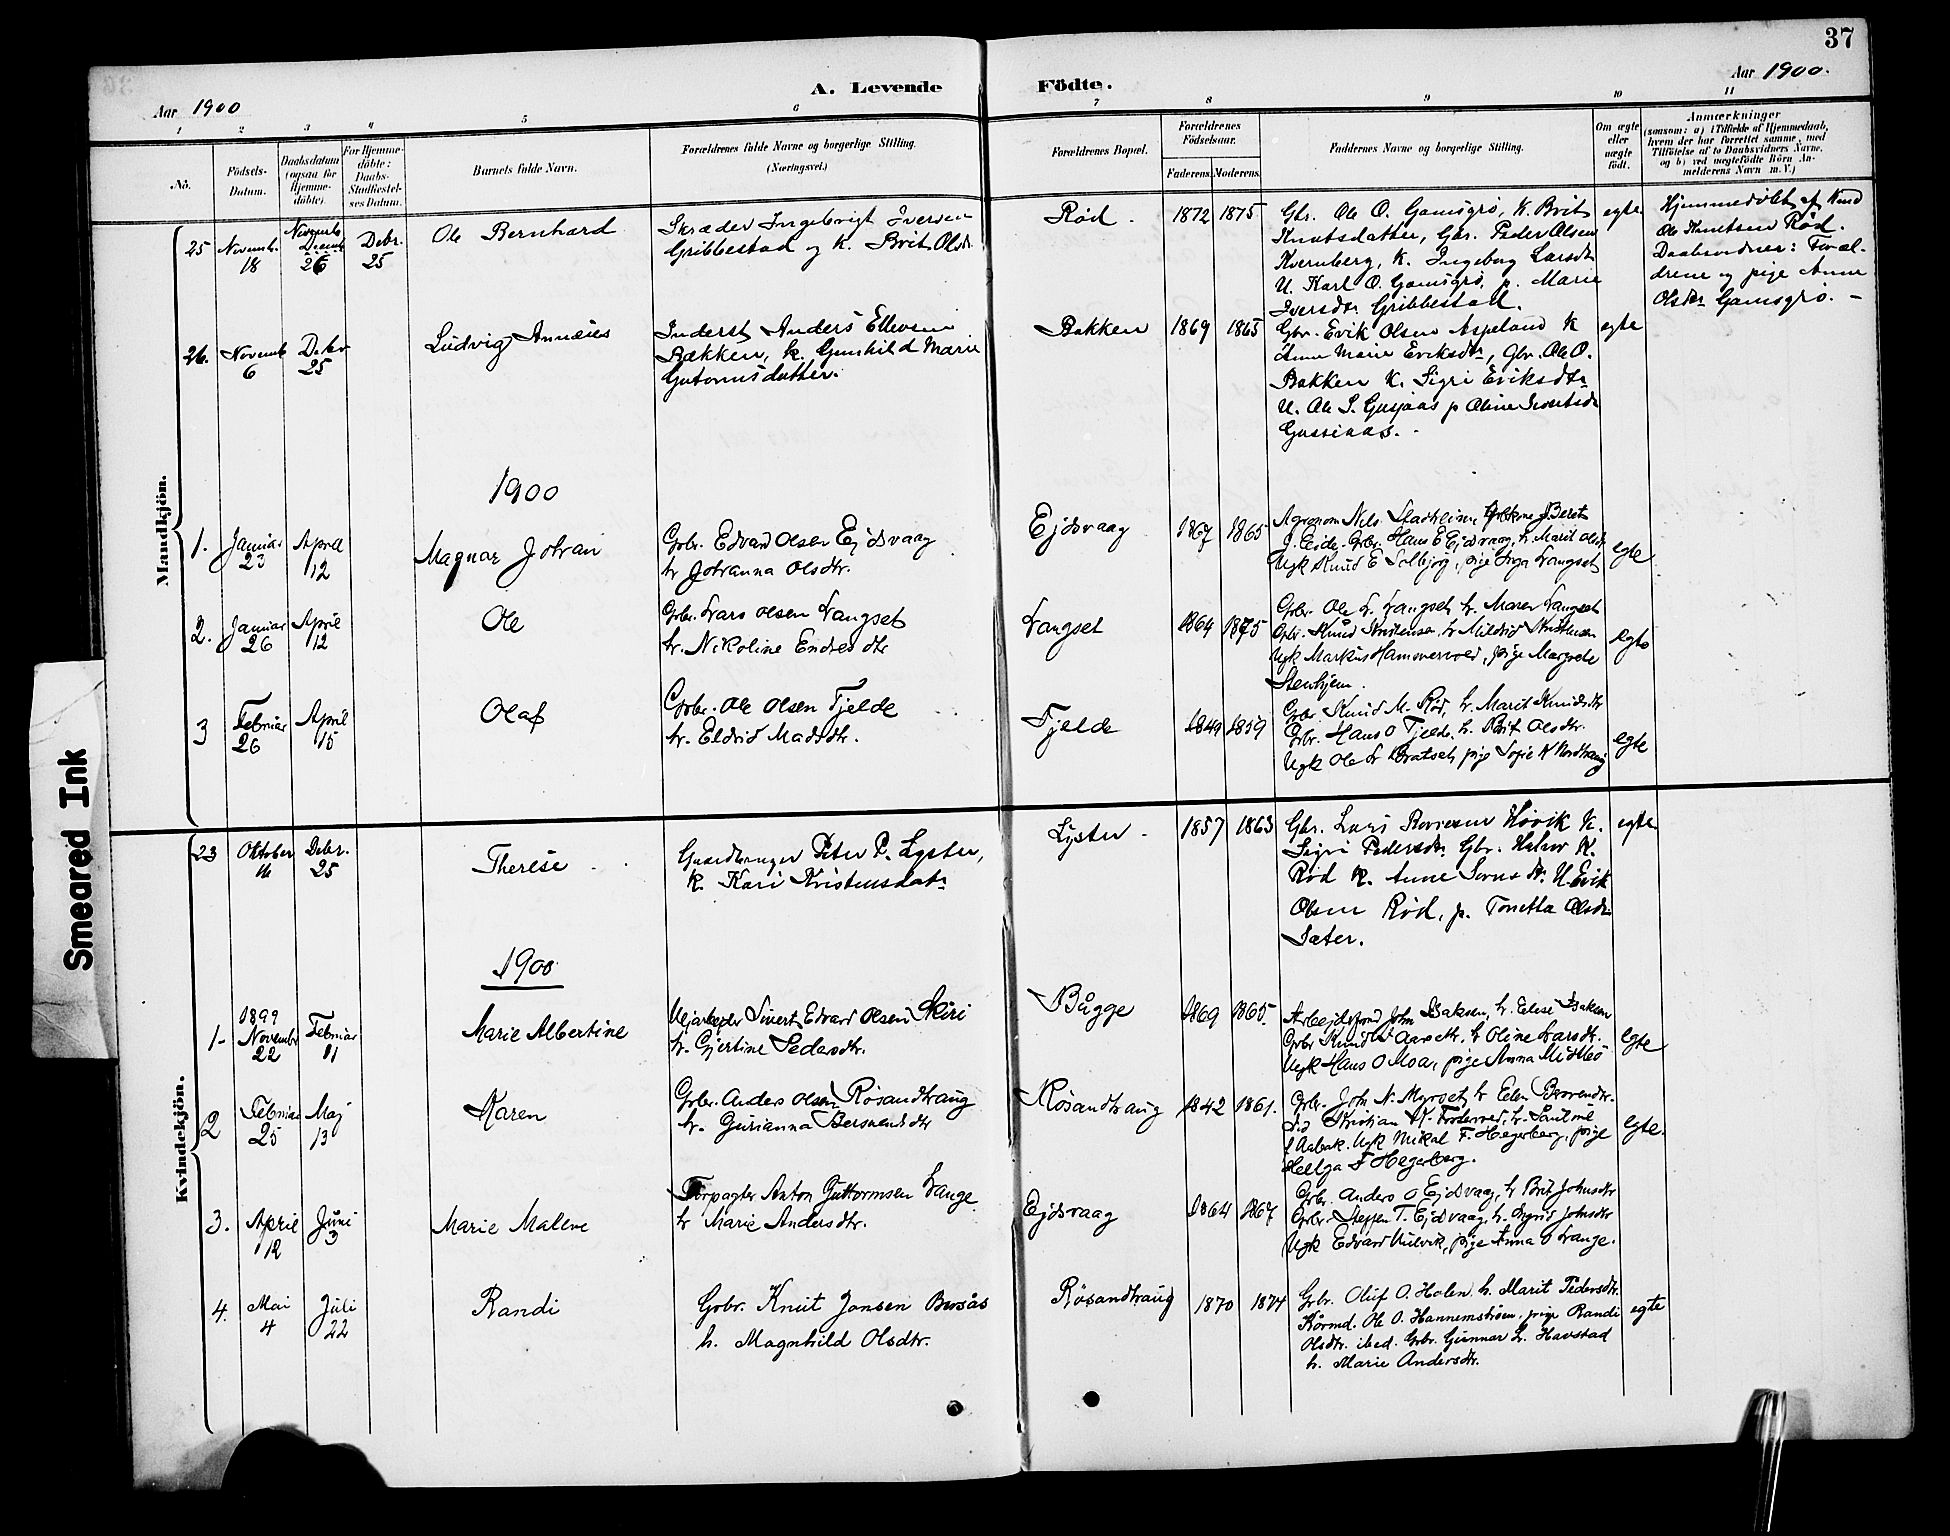 37
Aar 1900
A. Levende Födte.
Aar 1900.
1 2 3 4 5 6 7 8 9 10 11
No.
Födsels-Datum.
Daabsdatum (ogsaa for Hjemme-döbte).
For Hjemme-döbte: Daabs-Stadfæstel-ses Datum.
Barnets fulde Navn.
Forældrenes fulde Navne og borgerlige Stilling. (Næringsvei.)
Forældrenes Bopæl.
Forældrenes Födselsaar.
Faderens. Moderens.
Faddernes Navne og borgerlige Stilling.
Om ægte eller uægte födt.
Anmærkninger
(saasom: a) i Tilfælde af Hjemmedaab,
hvem der har forrettet samme, med
Tilföielse af to Daabsvidners Navne,
og b) ved uægtefödte Börn An-
melderens Navn m. V.)
Mandkjön.
25 Novemb. 18
Novemb Decemb 26
Debr. 25
Ole Bernhard
Skræder Ingebrigt Iversen
Gribbestad og k. Brit Olsdr
Rød.
1872 1875
Gbr. Ole O. Gamsgrø, K. Brit
Knutsdatter, Gbr. Peder Olsen
Kvernberg, K. Ingeborg Larsdr
U. Karl O. Gamsgrø, p. Marie
Iversdtr Gribbestad.
egte
Hjemmedöbt af Knud
Ole Knutsen Rød.
Daabsvidner: Foræl-
drene og pige Anne
Olsdtr Gamsgrø. -
26. Novemb 6
Debr 25
Ludvig Annæus
Inderst Anders Ellevsen
Bakken, k. Gunhild Marie
Gutormsdatter.
Bakken
1869 1865
Gbr. Erik Olsen Aspeland K
Anne Marie Eriksdtr, Gbr. Ole O.
Bakken K. Sigri Eriksdtr
U. Ole S. Gusjaas p Oline
Gussiaas.
egte
1900
1. Januar 23
April 12
Magnar Johan
Gbr. Edvard Olsen Ejdsvaag
h. Johanna Olsdtr.
Ejdsvaag
1867 1865
Agronom Nils Beret
J. Eide. Gbr. Hans E Ejdsvaag, h. Marit Olsdtr
Ugk Knud E Solbjørg, pige Inga Langset
egte
2. Januar 26
April 12
Ole
Gbr. Lars Olsen Langset
h. Nikoline Endresdtr
Langset
1864 1875
Gbr. Ole L. Langset, h. Maren Langset
Gbr. Knud Kristensen, h. Mildrid Kristensen
Ugk Markus Hammervold, pige Margrete
Stenhjem.
egte
3 Februar 26
April 15
Olaf
Gbr. Ole Olsen Fjelde
h. Eldrid Madsdtr.
Fjelde
1849 1859
Gbr. Knud M. Rød, h. Marit Knudsdtr
Gbr. Hans O Fjelde, h. Brit Olsdtr.
Ugk Ole L Bratset, pige Sofie K
egte
Kvindekjön.
23 Oktober
Debr. 25
Therese
Gaardbruger Peter P. Lyster,
k. Kari Kristensdatr
Lyster
1857 1863
Gbr. Lars Høvik K.
Sigri Pedersdtr Gbr. Halvor K.
Rød K. Anne U. Erik
Olsen Rød, p. Tonetta Olsdtr
Sæter.
egte
1900
1. 1899 Novembr 22
Februar 11
Marie Albertine
Vejarbejder Sivert Edvard Olsen Skiri
h. Gjertine Pedersdtr.
Bugge
1869 1865
Arbejdsfmd John Isaksen, h. Elise Isaksen
Gbr Knud h Oline Larsdtr.
Ugk Hans O Moa, pige Anna Midtbø
egte
2 Februar 25
Maj 13
Karen
Gbr. Anders Olsen Røsandhaug
h. Gurianna Bersvendsdtr
Røsandhaug
1842 1861.
Gbr. John N. Myrset, h Elen
Kristian K.
Ugk Mikal F. Hegerberg, pige
Helga F Hegerberg.
egte.
3. April 12
Juni 3
Marie Malene
Forpagter Anton Guttormsen Lange
h Marie Andersdtr.
Ejdsvaag
1864 1867
Gbr. Anders O Ejdsvaag, h Brit Johnsdtr
Gbr. Steffen T. Ejdsvaag, h. Sigrid Johnsdtr
Ugk Edvard Utvik, pige Anna O Lange.
4. Mai 4
Juli 22
Randi
Gbr. Knut Jonsen Bersås
h. Magnhild Olsdtr.
Røsandhaug
1870 1874
Gbr. Oluf O. Holen h. Marit Pedersdtr.
Ole O. Hannemstrøen, pige Randi
Olsdtr. ibid. Gbr. Gunnar L. Havstad
h. Marie Andersdtr.
egte
Smeared Ink